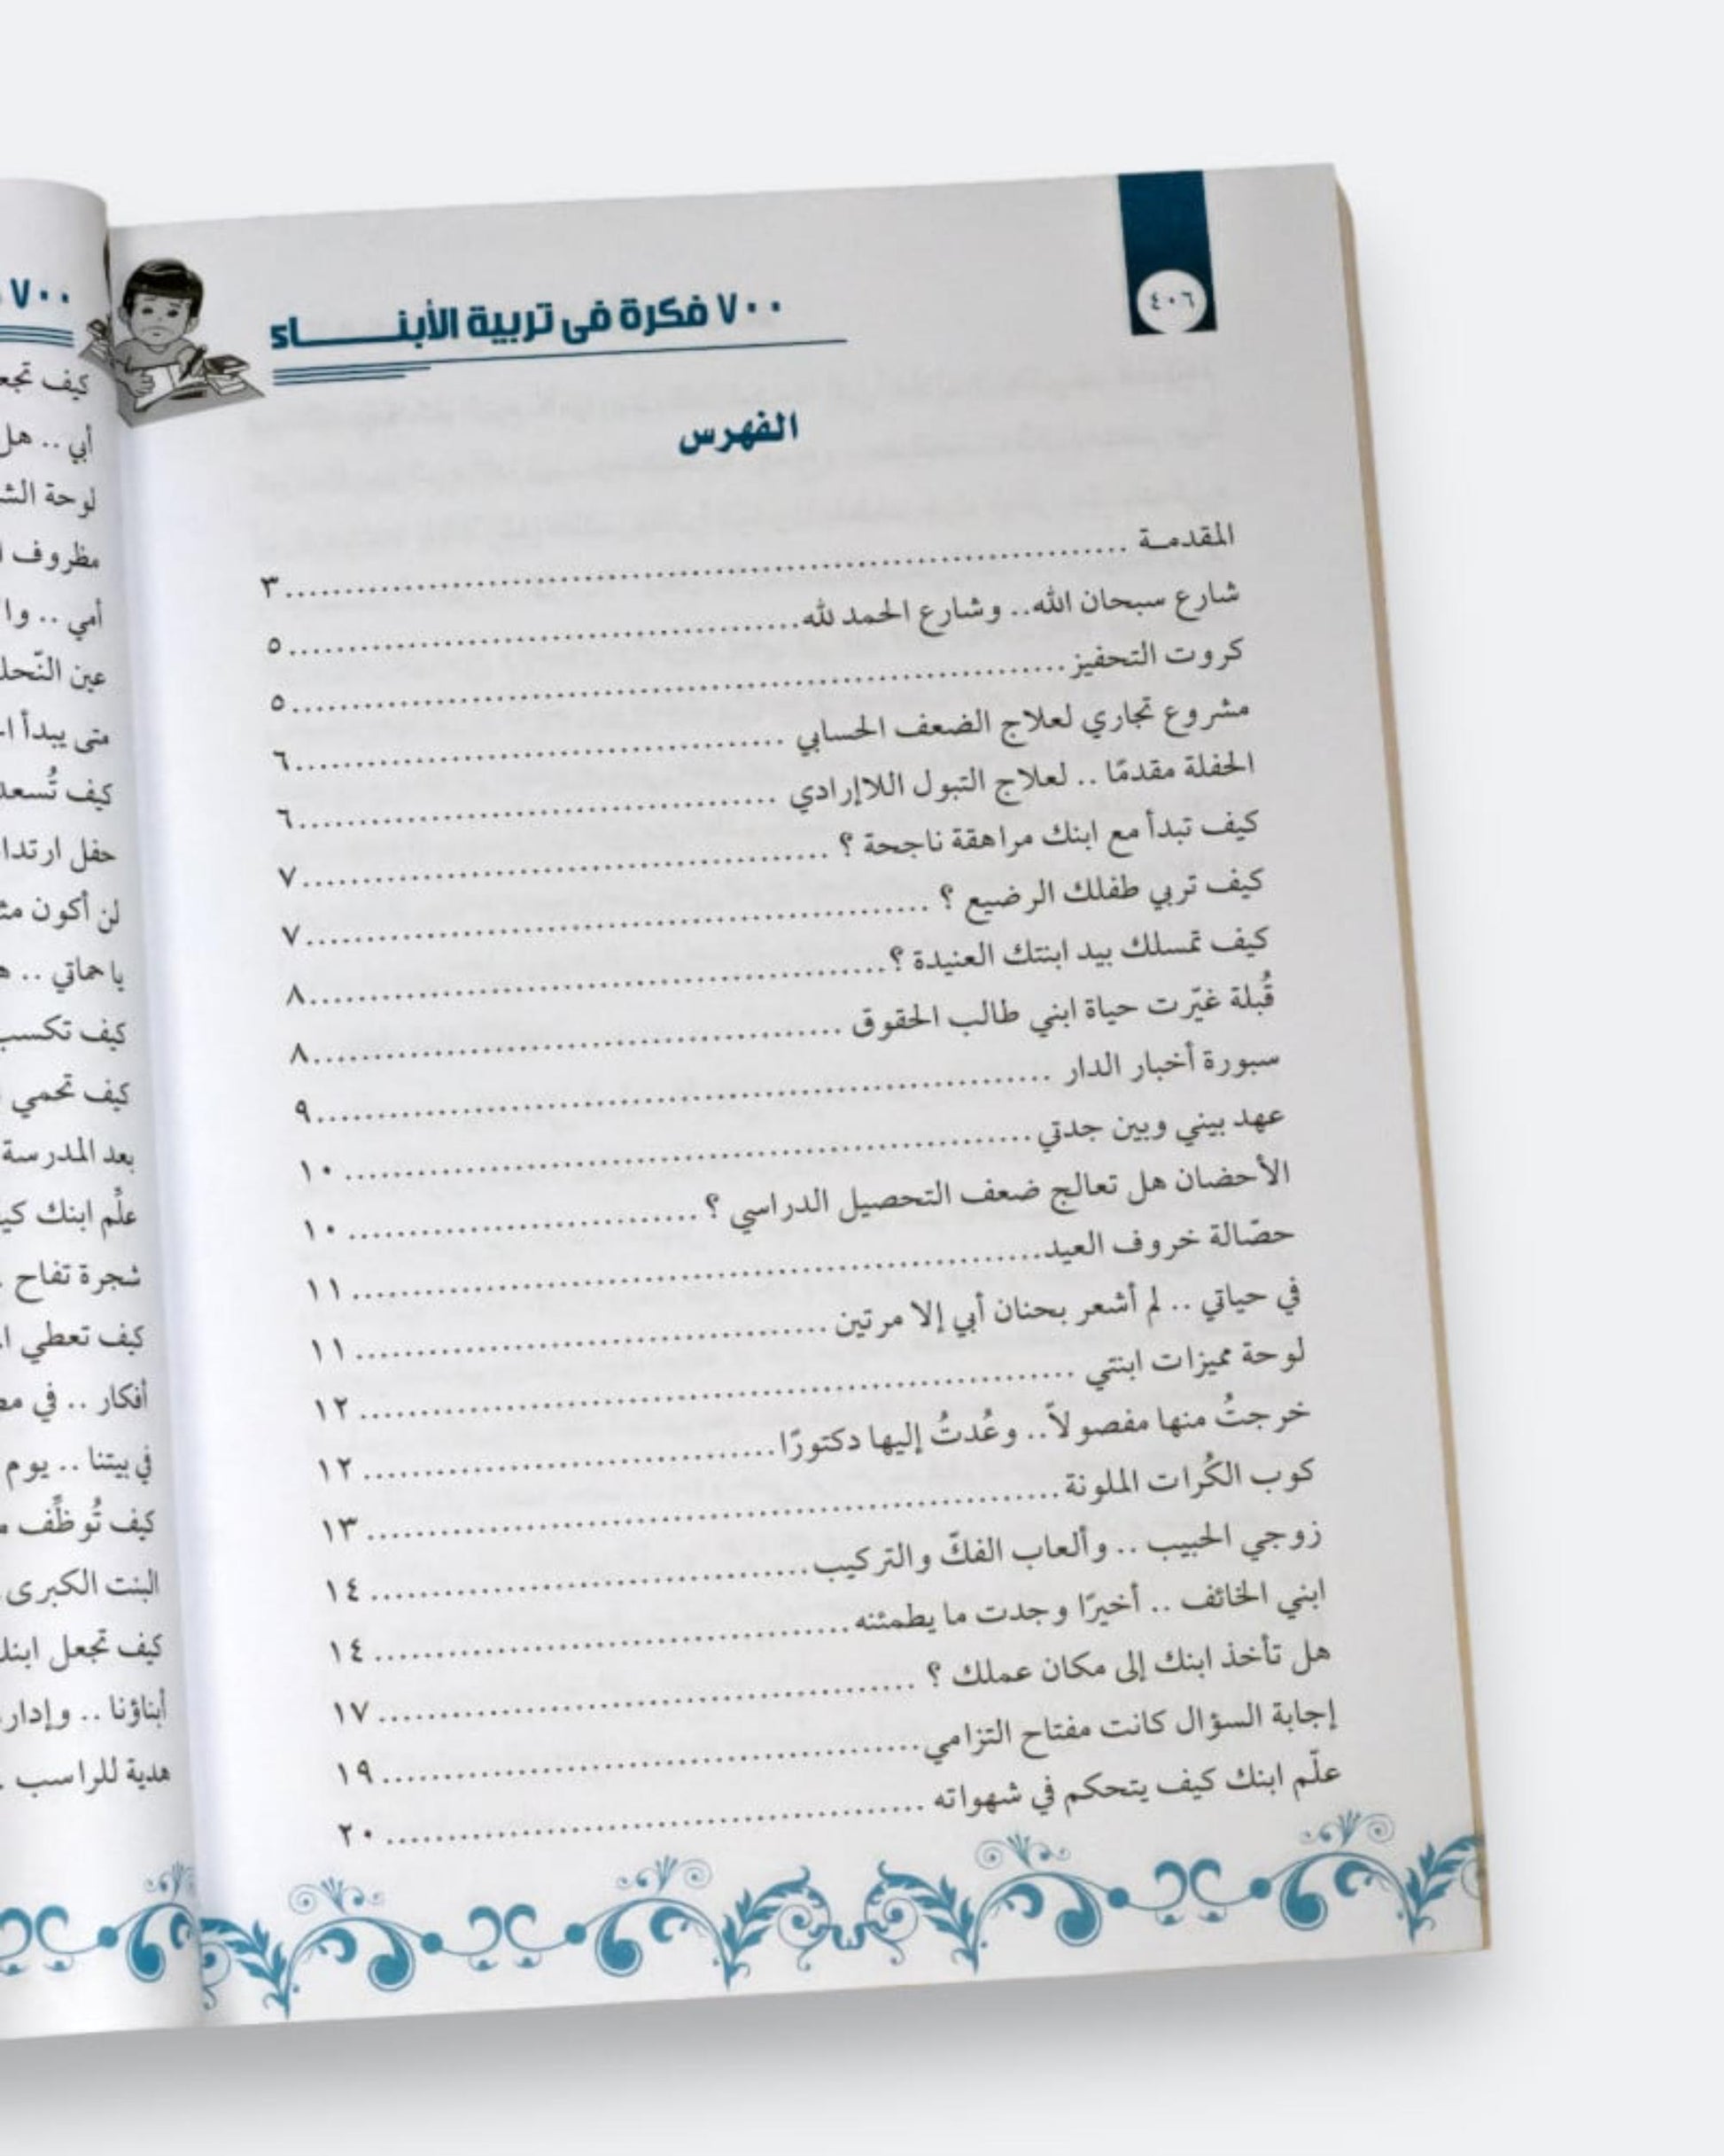 ٤٠٦
٧٠٠ فكرة فى تربية الأبنـــــــاء
الفهرس
المقدمـة ........ ٣
شارع سبحان الله.. وشارع الحمد لله ........ ٥
كروت التحفيز ........ ٥
مشروع تجاري لعلاج الضعف الحسابي ........ ٦
الحفلة مقدمًا .. لعلاج التبول اللاإرادي ........ ٦
كيف تبدأ مع ابنك مراهقة ناجحة ؟ ........ ٧
كيف تربي طفلك الرضيع ؟ ........ ٧
كيف تمسك بيد ابنتك العنيدة ؟ ........ ٨
قُبلة غيّرت حياة ابني طالب الحقوق ........ ٨
سبورة أخبار الدار ........ ٩
عهد بيني وبين جدتي ........ ١٠
الأحضان هل تعالج ضعف التحصيل الدراسي ؟ ........ ١٠
حصّالة خروف العيد ........ ١١
في حياتي .. لم أشعر بحنان أبي إلا مرتين ........ ١١
لوحة مميزات ابنتي ........ ١٢
خرجتُ منها مفصولاً.. وعُدتُ إليها دكتورًا ........ ١٢
كوب الكُرات الملونة ........ ١٣
زوجي الحبيب .. وألعاب الفكّ والتركيب ........ ١٤
ابني الخائف .. أخيرًا وجدت ما يطمئنه ........ ١٤
هل تأخذ ابنك إلى مكان عملك ؟ ........ ١٧
إجابة السؤال كانت مفتاح التزامي ........ ١٩
علّم ابنك كيف يتحكم في شهواته ........ ٢٠
٧٠٠
كيف
أبي .. هل
لوحة
مظروف
أمي ..
عين
متى يبدأ
كيف تُسعد
حفل
لن أكون
يا حماتي ..
كيف تكسب
كيف تحمي
بعد المدرسة
علِّم ابنك
شجرة تفاح
كيف تعطي
أفكار .. في
في بيتنا .. يوم
كيف تُوظِّف
البنت الكبرى
كيف تجعل
أبناؤنا ..
هدية للراسب